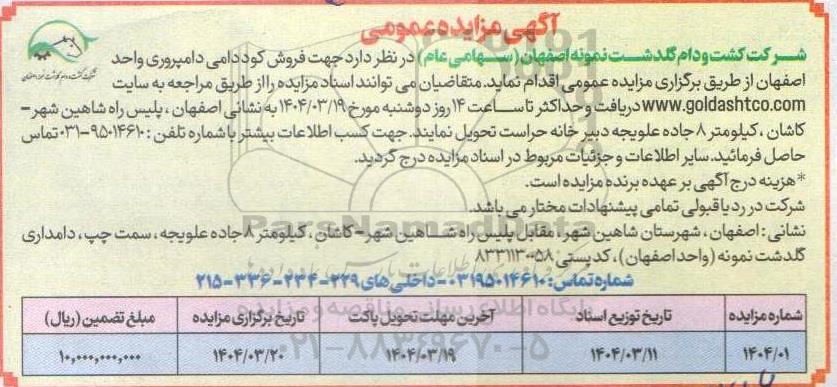 آگهی مزایده عمومی
شرکت کشت و دام گلدشت نمونه اصفهان (سهامی عام) در نظر دارد جهت فروش کود دامی دامپروری واحد
اصفهان از طریق برگزاری مزایده عمومی اقدام نماید. متقاضیان می توانند اسناد مزایده را از طریق مراجعه به سایت
www.goldashtco.com دریافت و حداکثر تا ساعت ۱۴ روز دوشنبه مورخ ۱۴۰۴/۰۳/۱۹ به نشانی اصفهان ، پلیس راه شاهین شهر-
کاشان ، کیلومتر ۸ جاده علویجه دبیر خانه حراست تحویل نمایند. جهت کسب اطلاعات بیشتر با شماره تلفن : ۹۵۰۱۴۶۱۰-۰۳۱ تماس
حاصل فرمائید. سایر اطلاعات و جزئیات مربوط در اسناد مزایده درج گردید.
*هزینه درج آگهی بر عهده برنده مزایده است.
شرکت در رد یا قبولی تمامی پیشنهادات مختار می باشد.
نشانی : اصفهان ، شهرستان شاهین شهر، مقابل پلیس راه شاهین شهر - کاشان ، کیلومتر ۸ جاده علویجه ، سمت چپ ، دامداری
گلدشت نمونه (واحد اصفهان) ، کد پستی ۸۳۳۱۱۳۰۰۵۸
شماره تماس : ۰۳۱۹۵۰۱۴۶۱۰ - داخلی های ۲۲۹-۲۳۴-۳۳۶-۲۱۵
شماره مزایده	تاریخ توزیع اسناد	آخرین مهلت تحویل پاکت	تاریخ برگزاری مزایده	مبلغ تضمین (ریال)
۱۴۰۴/۰۱	۱۴۰۴/۰۳/۱۱	۱۴۰۴/۰۳/۱۹	۱۴۰۴/۰۳/۲۰	۱۰,۰۰۰,۰۰۰,۰۰۰
ParsNamadData
پایگاه اطلاع رسانی مناقصه و مزایده
۰۲۱-۸۸۳۴۹۶۷۰-۵